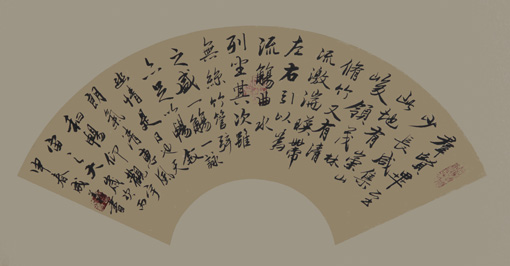 羣賢畢至
少長咸集
此地有崇山
峻領茂林
脩竹又有清
流激湍暎帶
左右引以為
流觴曲水
列坐其次雖
無絲竹管絃
之盛一觴一詠
亦足以暢敘
幽情是日也天
朗氣清惠風
和暢仰觀宇
宙之大